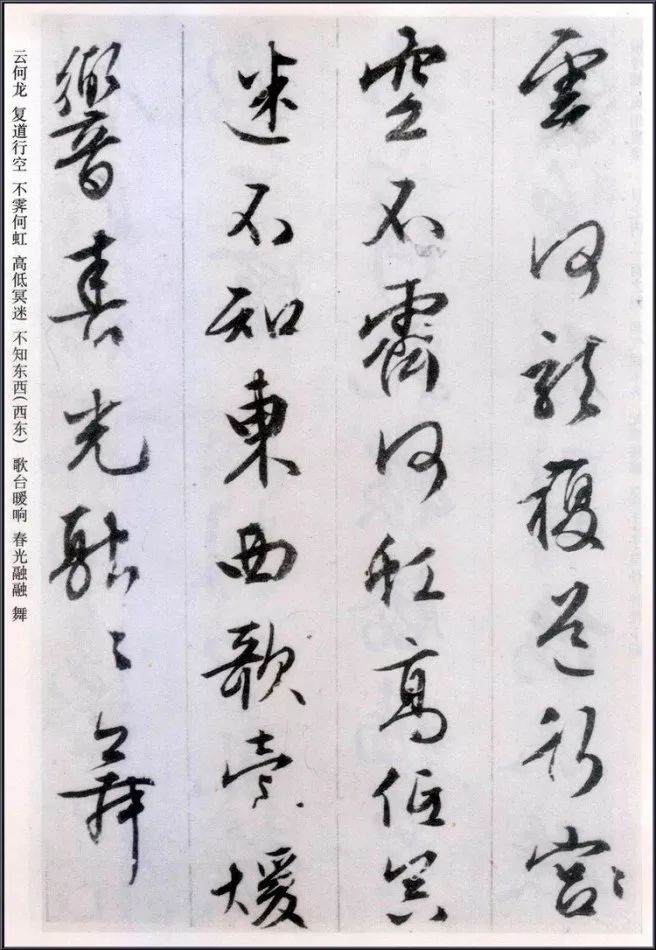 雲何龍複道行宫
空不霽何虹高低冥
迷不知東西歌臺煖
響春光融〻舞
云何龙 复道行空 不霁何虹 高低冥迷 不知东西(西东) 歌台暖响 春光融融 舞